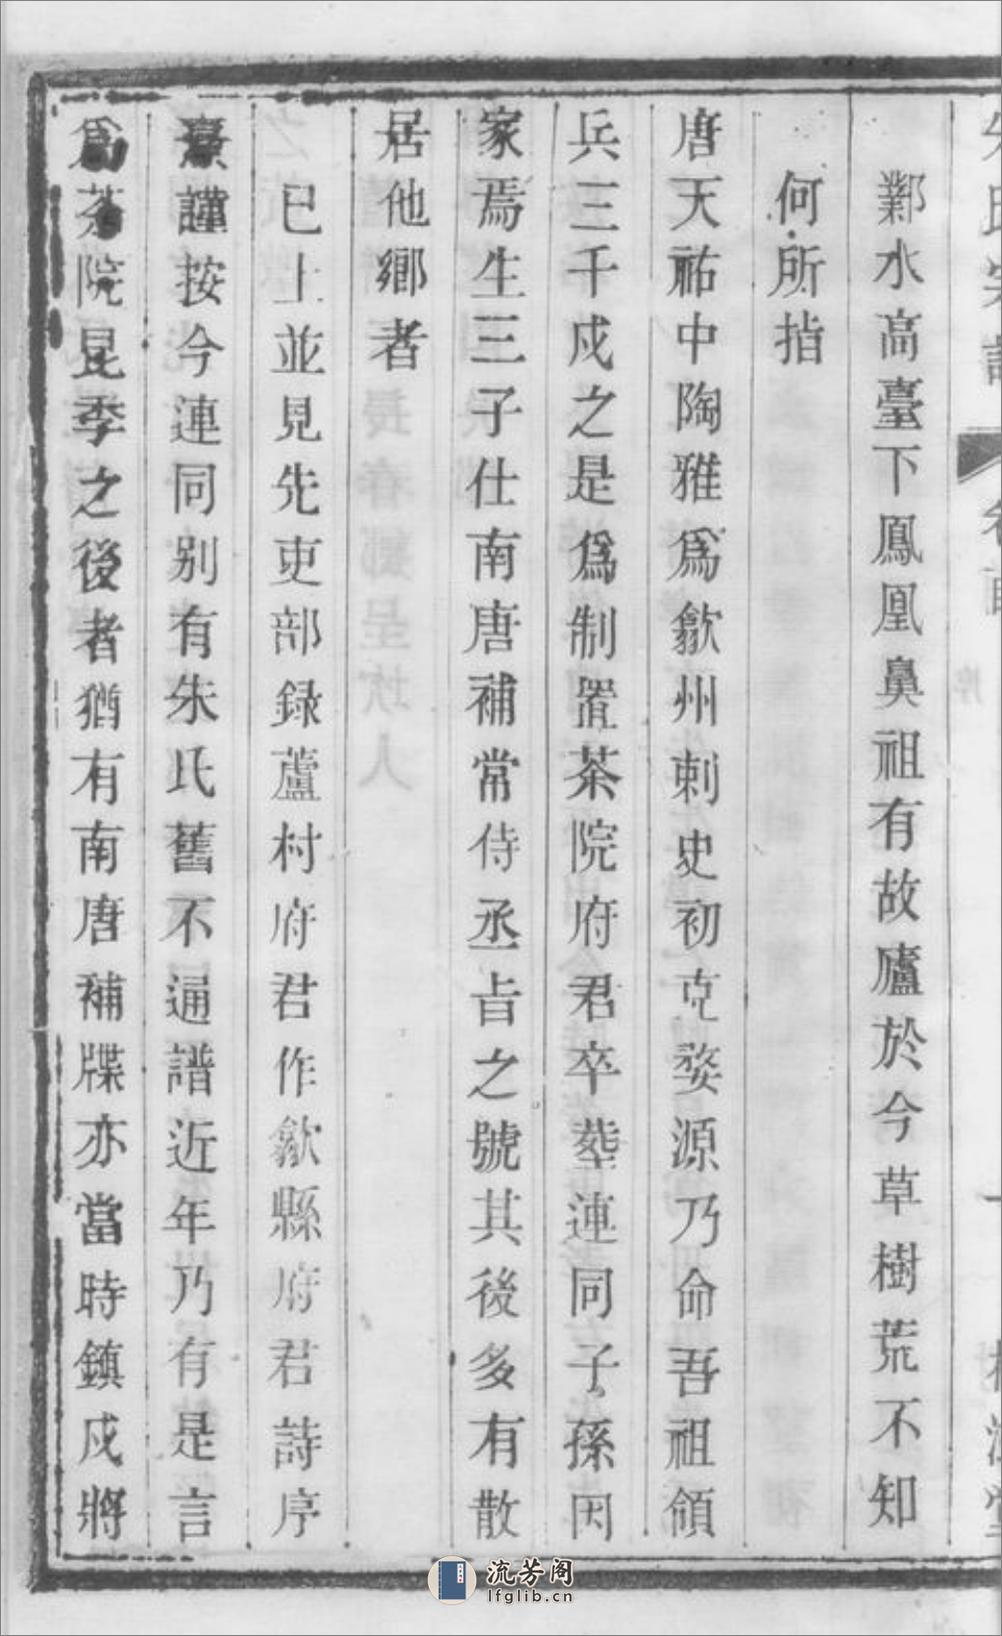 鄴水高臺下鳳凰鼻祖有故廬於今草樹荒不知
何所指
唐天祐中陶雅爲歙州刺史初克婺源乃命吾祖領
兵三千戍之是爲制置茶院府君卒葬連同子孫因
家焉生三子仕南唐補常侍丞旨之號其後多有散
居他鄉者
已上並見先吏部録蘆村府君作歙縣府君詩序
熹謹按今連同别有朱氏舊不通譜近年乃有是言
爲茶院昆季之後者猶有南唐補牒亦當時鎮戍將
流芳阁
lfglib.cn